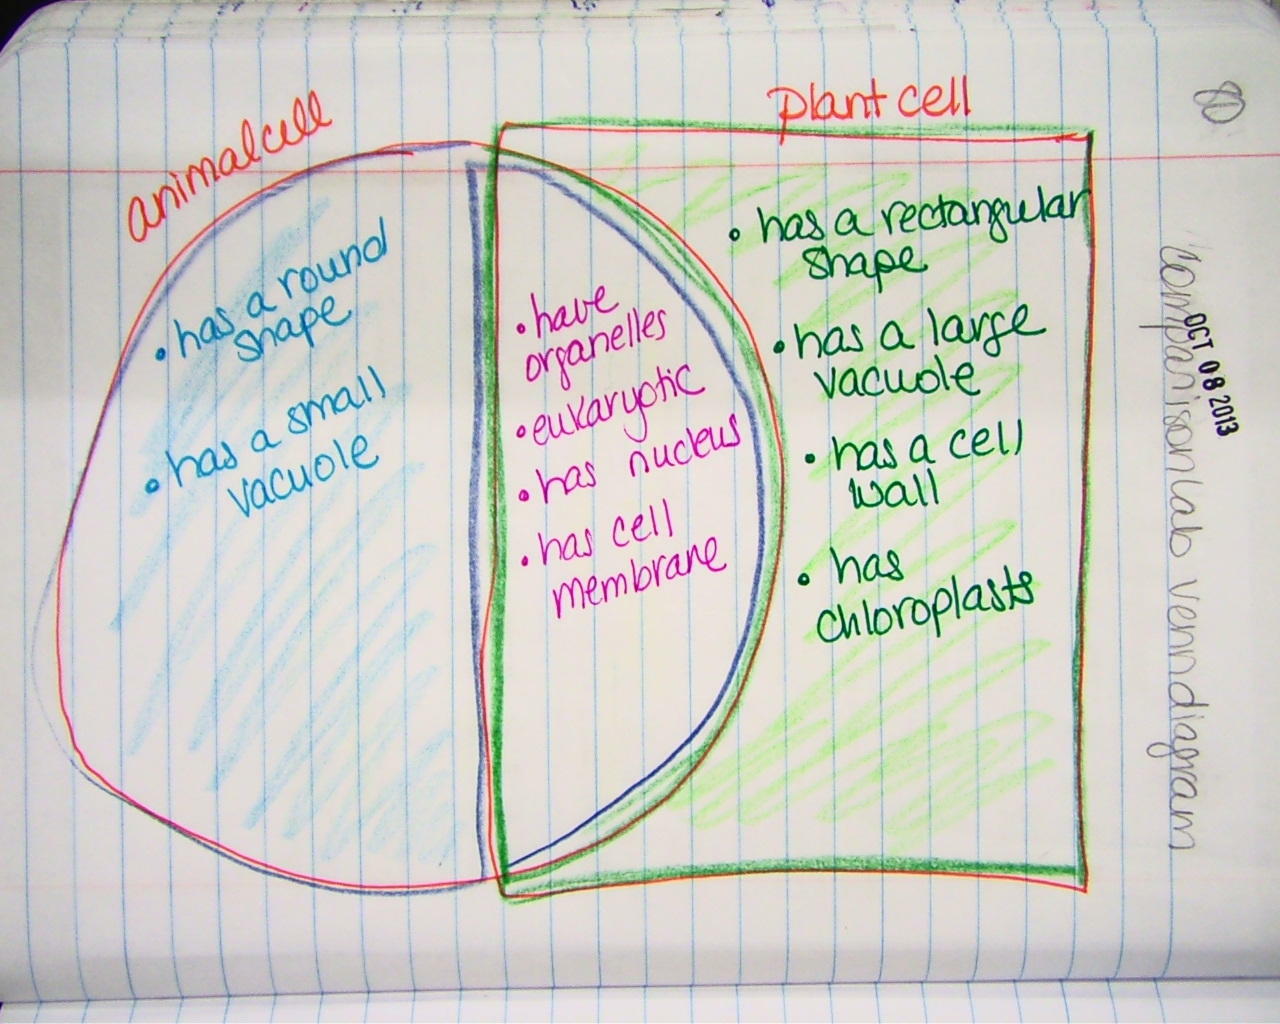 animal cell
plant cell
80
• has a round
shape
• has a small
vacuole
• have
organelles
• eukaryotic
• has nucleus
• has cell
membrane
• has a rectangular
shape
• has a large
vacuole
• has a cell
wall
• has
chloroplasts
OCT 08 2013
comparison lab venn diagram